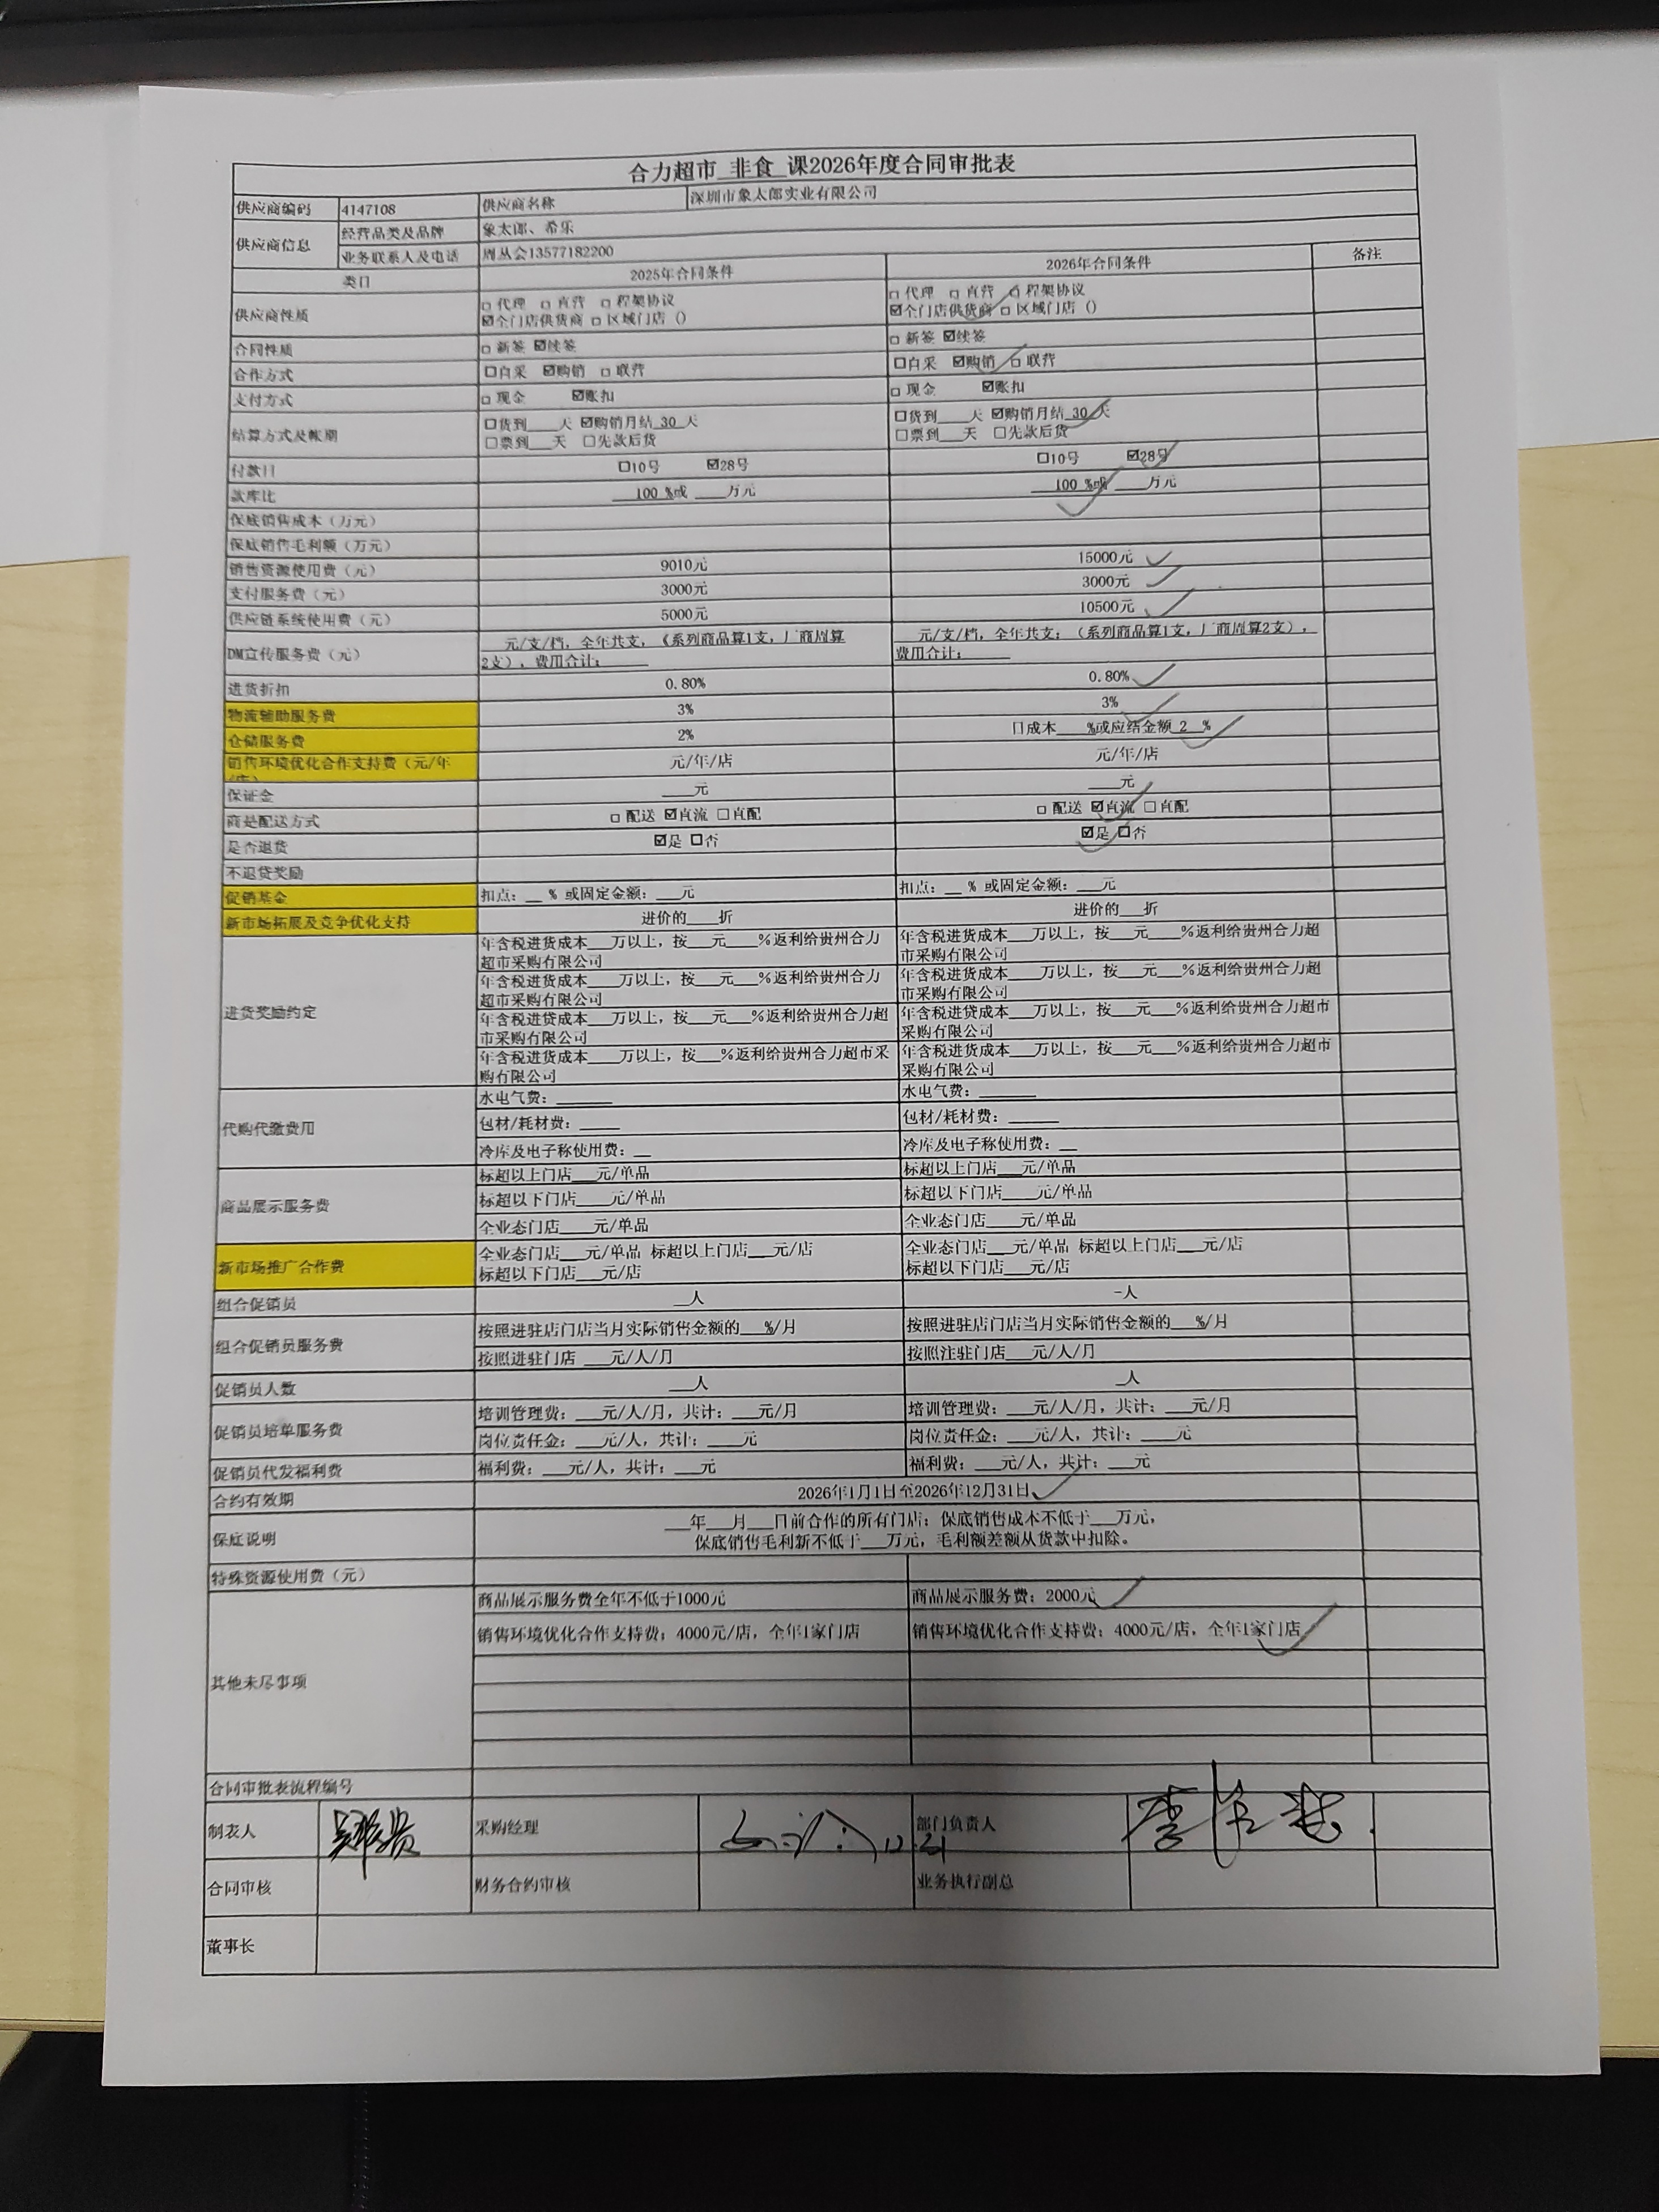 合力超市_非食_课2026年度合同审批表
供应商编码 4147108 供应商名称 深圳市象太郎实业有限公司
供应商信息 经营品类及品牌 象太郎、希乐
业务联系人及电话 周从会13577182200
类目 2025年合同条件 2026年合同条件 备注
供应商性质 □代理 □直营 □框架协议 □代理 □直营 □框架协议
☑全门店供货商 □区域门店（） ☑全门店供货商 □区域门店（）
合同性质 □新签 ☑续签 □新签 ☑续签
合作方式 □自采 ☑购销 □联营 □自采 ☑购销 □联营
支付方式 □现金 ☑账扣 □现金 ☑账扣
结算方式及帐期 □货到___天 ☑购销月结_30_天 □货到___天 ☑购销月结_30_天
□票到___天 □先款后货 □票到___天 □先款后货
付款日 □10号 ☑28号 □10号 ☑28号
款库比 __100_%或____万元 __100_%或____万元
保底销售成本（万元）
保底销售毛利额（万元）
销售资源使用费（元） 9010元 15000元
支付服务费（元） 3000元 3000元
供应链系统使用费（元） 5000元 10500元
DM宣传服务费（元） __元/支/档，全年共支，（系列商品算1支，厂商周算 __元/支/档，全年共支；（系列商品算1支，厂商周算2支），
2支），费用合计：______ 费用合计：______
进货折扣 0.80% 0.80%
物流辅助服务费 3% 3%
仓储服务费 2% 口成本____%或应结金额_2__%
销售环境优化合作支持费（元/年/店） 元/年/店 元/年/店
保证金 ___元 ___元
商品配送方式 □配送 ☑直流 □直配 □配送 ☑直流 □直配
是否退货 ☑是 □否 ☑是 □否
不退货奖励
促销基金 扣点：__ % 或固定金额：___元 扣点：__ % 或固定金额：___元
新市场拓展及竞争优化支持 进价的___折 进价的___折
进货奖励约定 年含税进货成本___万以上，按___元____%返利给贵州合力 年含税进货成本___万以上，按___元____%返利给贵州合力超
超市采购有限公司 市采购有限公司
年含税进货成本____万以上，按___元____%返利给贵州合力 年含税进货成本____万以上，按___元____%返利给贵州合力超
超市采购有限公司 市采购有限公司
年含税进贷成本___万以上，按___元___%返利给贵州合力超 年含税进贷成本___万以上，按___元___%返利给贵州合力超市
市采购有限公司 采购有限公司
年含税进货成本___万以上，按___%返利给贵州合力超市采 年含税进货成本___万以上，按___元___%返利给贵州合力超市
购有限公司 采购有限公司
代购代缴费用 水电气费：______ 水电气费：______
包材/耗材费：____ 包材/耗材费：_____
冷库及电子称使用费：__ 冷库及电子称使用费：__
商品展示服务费 标超以上门店___元/单品 标超以上门店___元/单品
标超以下门店____元/单品 标超以下门店____元/单品
全业态门店____元/单品 全业态门店____元/单品
新市场推广合作费 全业态门店___元/单品 标超以上门店___元/店 全业态门店___元/单品 标超以上门店___元/店
标超以下门店___元/店 标超以下门店___元/店
组合促销员 __人 -人
组合促销员服务费 按照进驻店门店当月实际销售金额的___%/月 按照进驻店门店当月实际销售金额的___%/月
按照进驻门店 ___元/人/月 按照注驻门店___元/人/月
促销员人数 ___人 ___人
促销员培单服务费 培训管理费：___元/人/月，共计：___元/月 培训管理费：___元/人/月，共计：___元/月
岗位责任金：___元/人，共计：____元 岗位责任金：___元/人，共计：____元
促销员代发福利费 福利费：___元/人，共计：___元 福利费：___元/人，共计：___元
合约有效期 2026年1月1日至2026年12月31日
保底说明 ___年___月___日前合作的所有门店：保底销售成本不低于___万元，
保底销售毛利新不低于___万元，毛利额差额从货款中扣除。
特殊资源使用费（元）
其他未尽事项 商品展示服务费全年不低于1000元 商品展示服务费：2000元
销售环境优化合作支持费：4000元/店，全年1家门店 销售环境优化合作支持费：4000元/店，全年1家门店
合同审批表流程编号
制表人 采购经理 12.21 部门负责人
合同审核 财务合约审核 业务执行副总
董事长